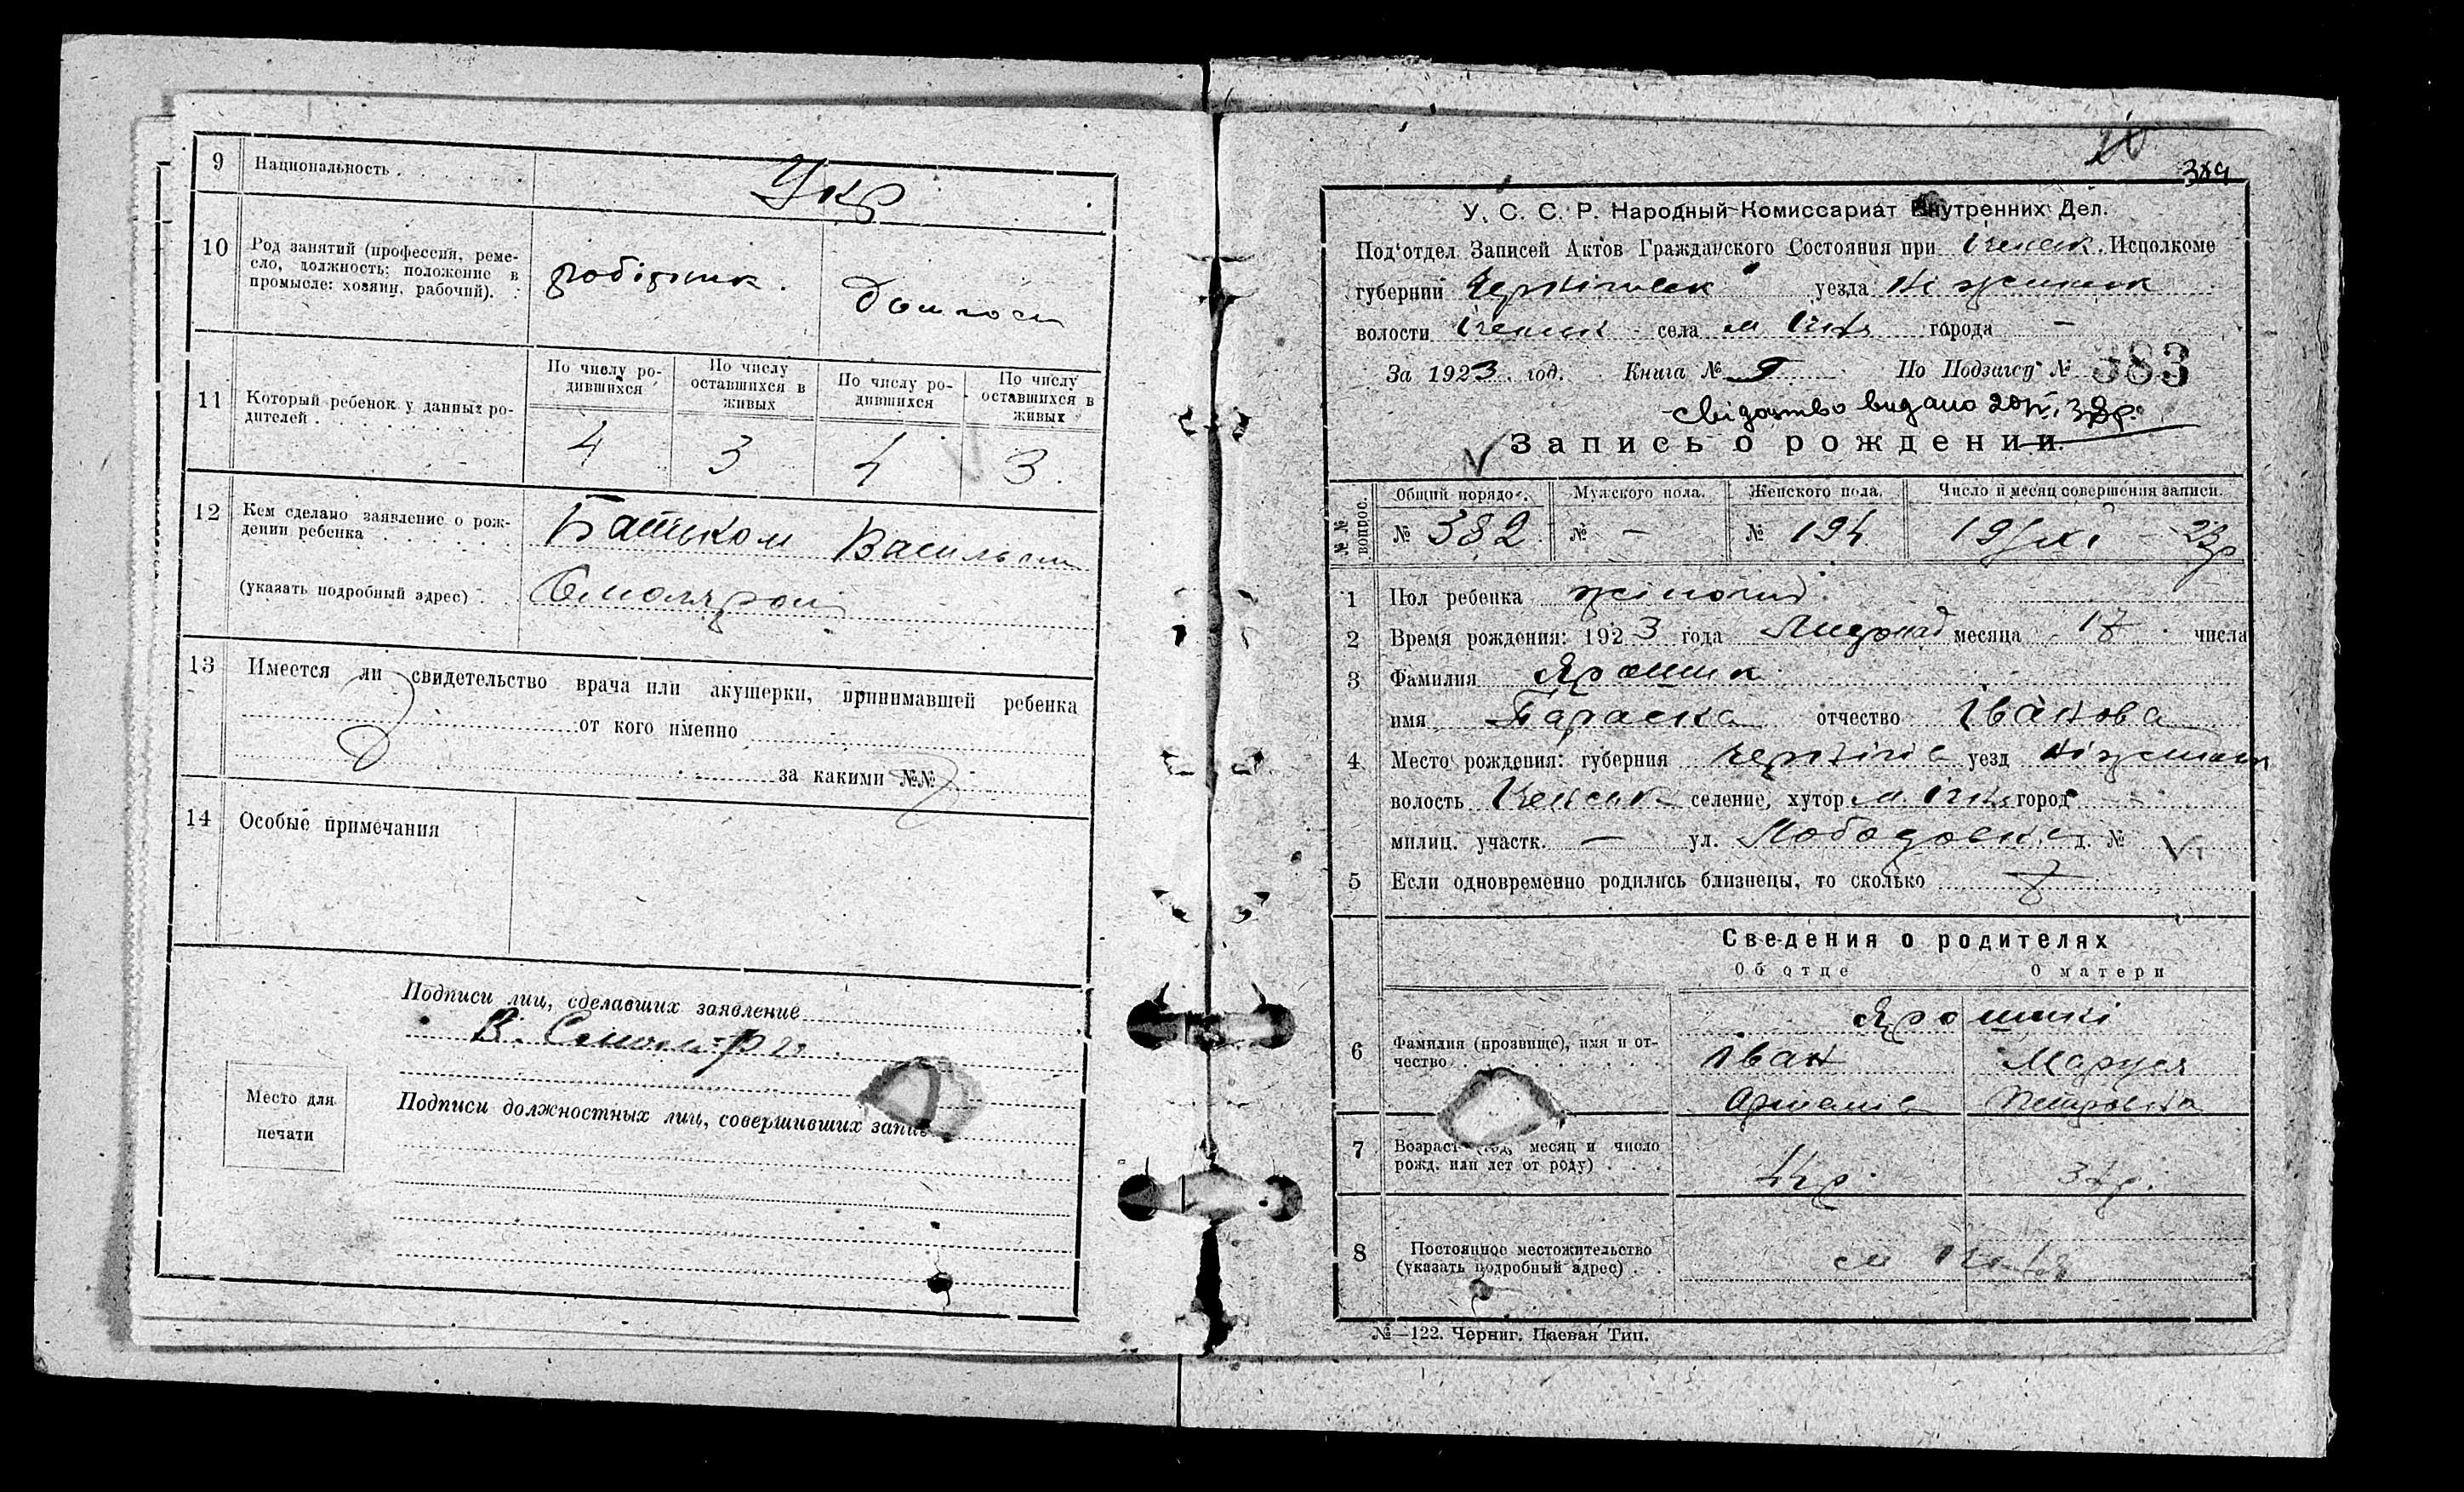 9 Национальность . . . . . Укр
10 Род занятий (профессия, реме-
сло, должность; положение в
промысле: хозяин, рабочий). робітник.
11 Который ребенок у данных ро-
дителей
По числу ро-
дившихся
По числу
оставшихся в
живых
По числу ро-
дившихся
По числу
оставшихся в
живых
4 3 4 3
12 Кем сделано заявление о рож-
дении ребенка Батьком Васильом
(указать подробный адрес) Смоляром
13 Имеется ли свидетельство врача или акушерки, принимавшей ребенка
от кого именно
за какими №№
14 Особые примечания
Подписи лиц, сделавших заявление
В. Смоляр
Место для
печати
Подписи должностных лиц, совершивших запис
389
У. С. С. Р. Народный Комиссариат Внутренних Дел.
Под'отдел Записей Актов Гражданского Состояния при Іченськ. Исполкоме
губернии Чернігівськ уезда Ніженськ
волости Іченськ села м Ічня города —
За 1923 год. Книга № По Подзагсу № 383
свідоцтво видано
Запись о рождении.
№№ вопрос.
Общий порядок. Мужского пола. Женского пола. Число и месяц совершения записи.
№ 382 № — № 194 19/XI - 23р
1 Пол ребенка жіночий
2 Время рождения: 1923 года Листопад месяца 17 числа
3 Фамилия Ярошик
имя Параска отчество Іванова
4 Место рождения: губерния Чернігів уезд Ніженськ
волость Іченськ селение, хутор м Ічня город
милиц. участк. — ул. Лободовка д. №
5 Если одновременно родились близнецы, то сколько
Сведения о родителях
Об отце О матери
6 Фамилия (прозвище), имя и от-
чество
Ярошики
Іван Маруся
Петровна
7 Возраст (год, месяц и число
рожд. или лет от роду)
8 Постоянное местожительство
(указать подробный адрес) м Ічня
№—122. Черниг. Паевая Тип.